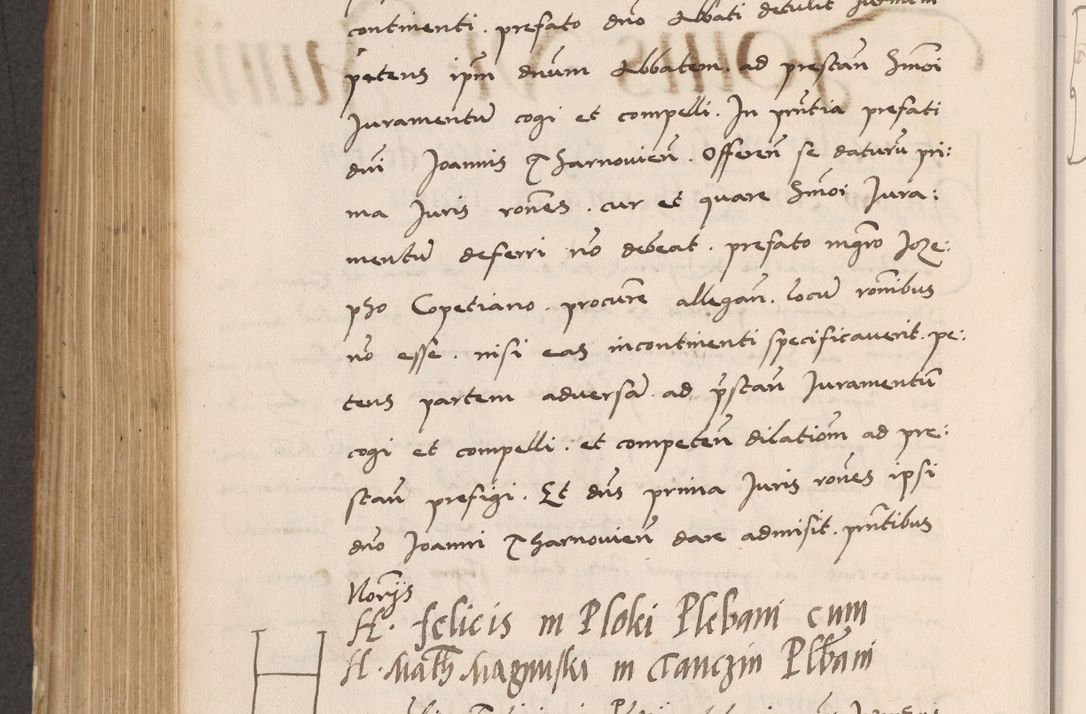 continenti . prefato dno Abbati detulit
petens ipm dnum Abbatem . ad prestan hmoi
Juramentu cogi et compelli . In pntia prefati
dni Joannis Tharnovien . Offeren se daturu pri:
ma Juris rones . cur et quare hmoi Jura:
mentu deferri no debeat . prefato mgro Joze:
pho Copetiano . procure allegan . locu ronibus
no esse . nisi eas incontinenti specificaverit . pe:
tens partem adversa . ad pstan Juramentu
cogi et compelli . et competen dilationm ad pre:
stan prefigi . Et dns prima Juris rones ipsi
dno Joanni Tharnovien dare admisit . pntibus
Norijs
H . felicis in Ploki Plebani cum
H . Math Magnuski in Canczin Plbani